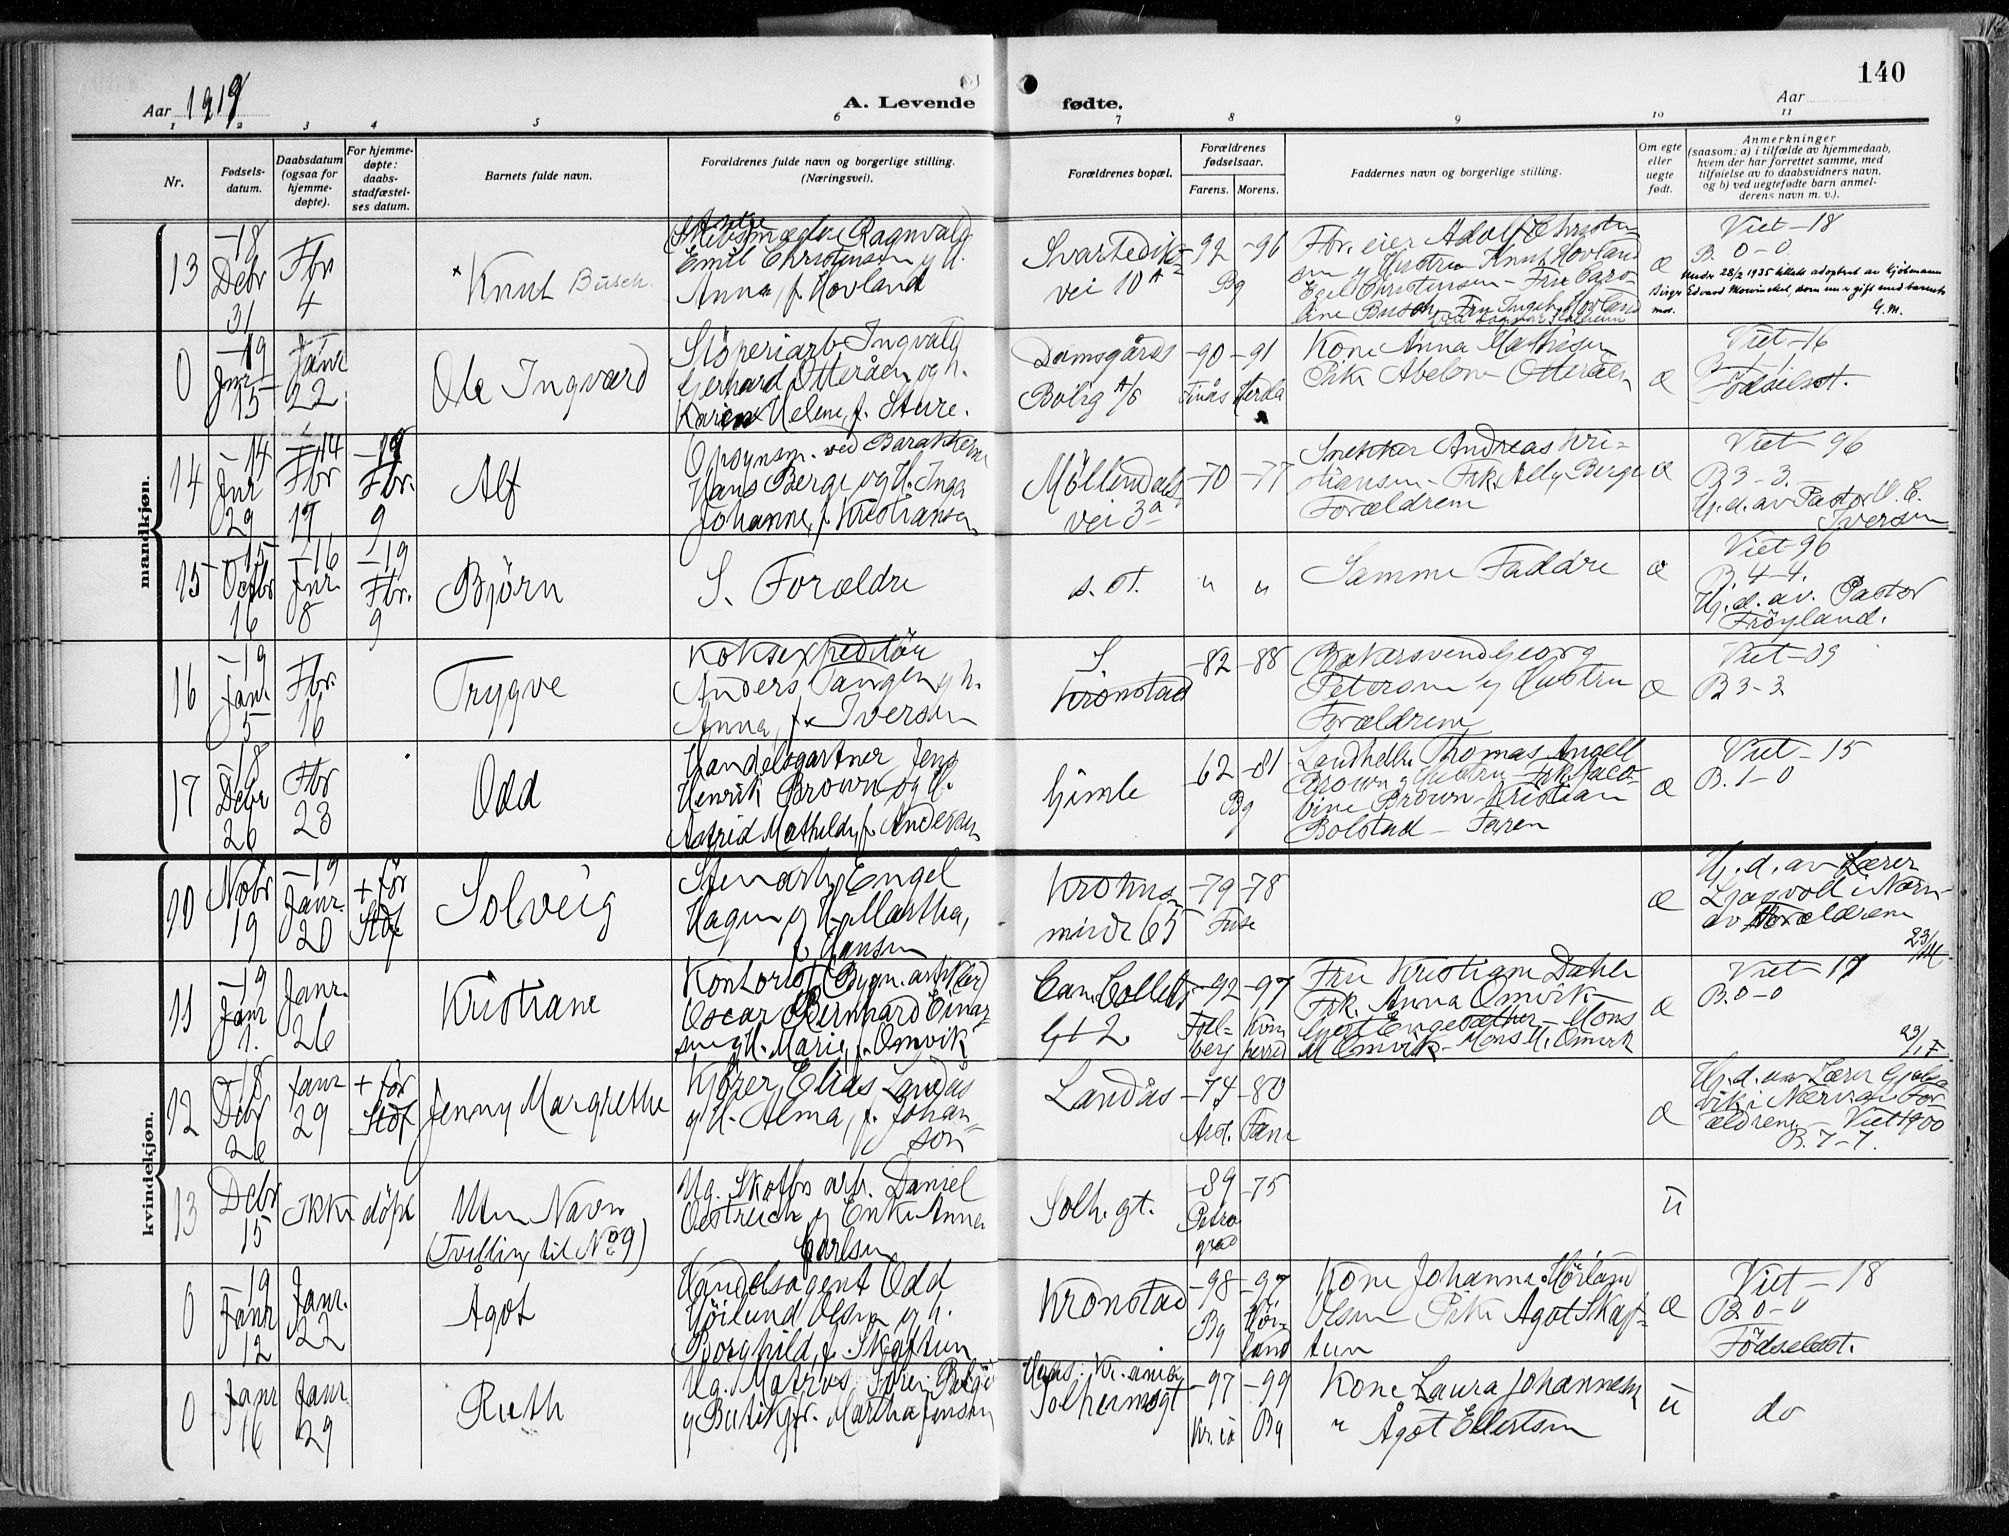 140
Aar 1919
A. Levende
fødte.
Aar
1 2 3 4 5 6 7 8 9 10 11
Nr.
Fødsels-
datum.
Daabsdatum
(ogsaa for
hjemme-
døpte).
For hjemme-
døpte:
daabs-
stadfæstel-
ses datum.
Barnets fulde navn.
Forældrenes fulde navn og borgerlige stilling.
(Næringsvei).
Forældrenes bopæl.
Forældrenes
fødselsaar.
Farens. Morens.
Faddernes navn og borgerlige stilling.
Om egte
eller
uegte
født.
Anmerkninger
(saasom: a) i tilfælde av hjemmedaab,
hvem der har forrettet samme, med
tilføielse av to daabsvidners navn,
og b) ved uegtefødte barn anmel-
derens navn m. v.).
mandkjøn.
13
-18
Debr
31
Fbr
4
Knut Busch
Skibsmægler Ragnvald
Emil Christensen g H.
Anna, f. Hovland
Svartediks-
vei 10 A
-92 -96
Bg
Fbr. eier Adolf Christen
sen g Hustru Knut Hovland
Egil Christensen - Fru Caro-
line Busch - Fru Ingeb. Hovland
æ
Viet -18
B. 0-0
under 28/2 1935 adoptert av kjøbmann
Birger Edvard Mowinckel, som er gift med barnets
mor. G.M.
0
-19
Jnr
15
Janr
22
Ole Ingvard
Støperiarb Ingvald
Gerhard Otteråen og h.
Karen Helene, f. Sture.
Damsgårds
Bolig A/6
-90 -91
Finås Herdla
Kone Anna Mathisen
Pike Abelone Otteråen
æ
Viet -16
B. 1-1
Fødselsst.
14
-14
Jnr
29
-14
Fbr
17
-19
Fbr.
9
Alf
Opsynsm. ved Barakkerne
Hans Berge og H. Inga
Johanne, f. Kristiansen
Møllendals
vei 3a
-70 -77
Snekker Andreas Kri-
stiansen - Frk. Aelly Berge
Forældrene
æ
Viet -96
B 3-3.
Hj. d. av Pastor O. C.
Iversen
15
-15
Octbr
16
-16
Jnr
8
-19
Fbr.
9
Bjørn
S. Forældre
s. st.
" "
Samme Faddre
æ
Viet 96
B. 4-4.
Hj. d. av. Pastor
Frøyland.
16
-19
Janr
5
Fbr.
16
Trygve
Koksexpeditør
Anders Tangen g h.
Anna, f. Iversen
S.
Kronstad
-82 -88
Bakersvend Georg
Petersen g Hustru
Forældrene
æ
Viet -09
B 3-3
17
18
Debr
26
Fbr
23
Odd
Handelsgartner Jens
Henrik Brown og H.
Astrid Mathilde, f. Andersen
Gimle
-62 -81
Bg
Landhdlr. Thomas Angell
Brown g Hustru - Frk. Jaco-
bine Brown - Kristian
Bolstad - Faren
æ
Viet -15
B. 1-0
kvindekjøn.
10
Nobr
19
-19
Janr.
20
+ før
Stdf
Solveig
Stenarb. Engel
Hagen g H. Martha,
f. Hansen
Krohns
minde 65
-79 -78
Fuse
æ
Hj. d. av Lærer
Ljosvoll i Nærv
av Forældrene
23/
11
-19
Janr
1.
Janr.
26
Kristiane
Kontorist (Bygn. arb.)
Oscar Bernhard Einar-
sen g H. Marie, f. Omvik
Cam. Collets
gt 2
-92 -97
Fjel-
berg
Kvin
herred
Fru Kristiane Dahle
Frk. Anna Omvik -
Engesæther - Mons
M Omvik - Mons M. Omvik
æ
Viet -17
B. 0-0
12
18
Debr
26
Janr
29
+ før
Stdf
Jenny Margrethe
Kjører Elias Landås
g H. Alma, f. Johan-
son
Landås
-74 -80
Fane
æ
Hj. d. av Lærer
vik i Nærv. av For
ældrene - Viet 1900
B. 7-7.
13
Debr
15
ikke døpt
Uten Navn
(Tvilling til No 9)
Ug. Skofbr arb. Daniel
Oestreich g Enke Anna
Carlsen
Solh. gt.
-89 -75
Petro
grad
u
0
-19
Janr
12
Janr.
22
Agot
Handelsagent Odd
Høilund Olsen g h.
Borghild, f. Skaftun
Kronstad
-98 -97
Bg
Kone Johanne Høilund
Olsen Pike Agot Skaf-
tun
æ
Viet -18
B. 0-0
Fødselsst.
0
Janr
16
Janr
29
Ruth
Ug. Matros
g Butikjfr. Martha Jensen
Hans: Kr.ania
Solheimsgt
-97 -99
Kr.ia Bg
Kone Laura Johannesen
" Ågot Ellertsen
u
do